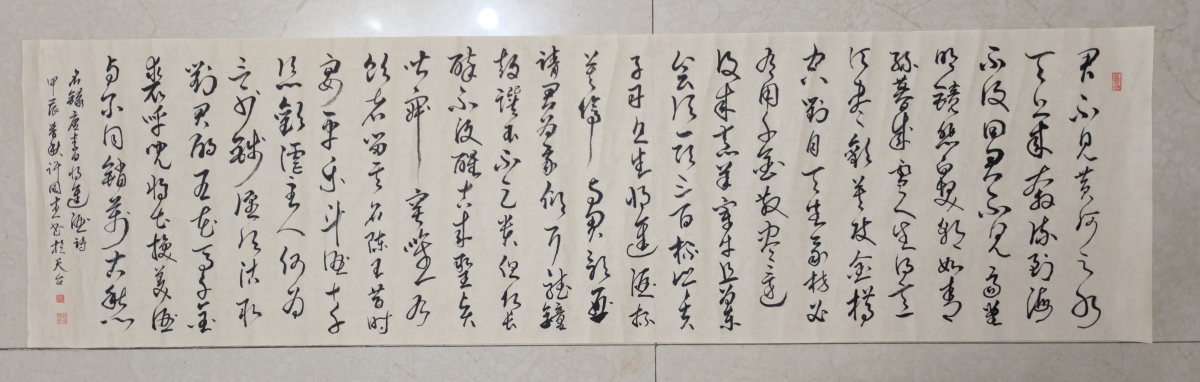 君不见黄河之水
天上来奔流到海
不复回君不见高堂
明镜悲白发朝如青
丝暮成雪人生得意
须尽欢莫使金樽
空对月天生我材必
有用千金散尽还
复来烹羊宰牛且为乐
会须一饮三百杯岑夫
子丹丘生将进酒杯
莫停与君歌一曲
请君为我倾耳听钟
鼓馔玉不足贵但愿长
醉不复醒古来圣贤
皆寂寞唯有
饮者留其名陈王昔时
宴平乐斗酒十千
恣欢谑主人何为
言少钱径须沽取
对君酌五花马千金
裘呼儿将出换美酒
与尔同销万古愁
唐李白将进酒诗
甲辰 于天台